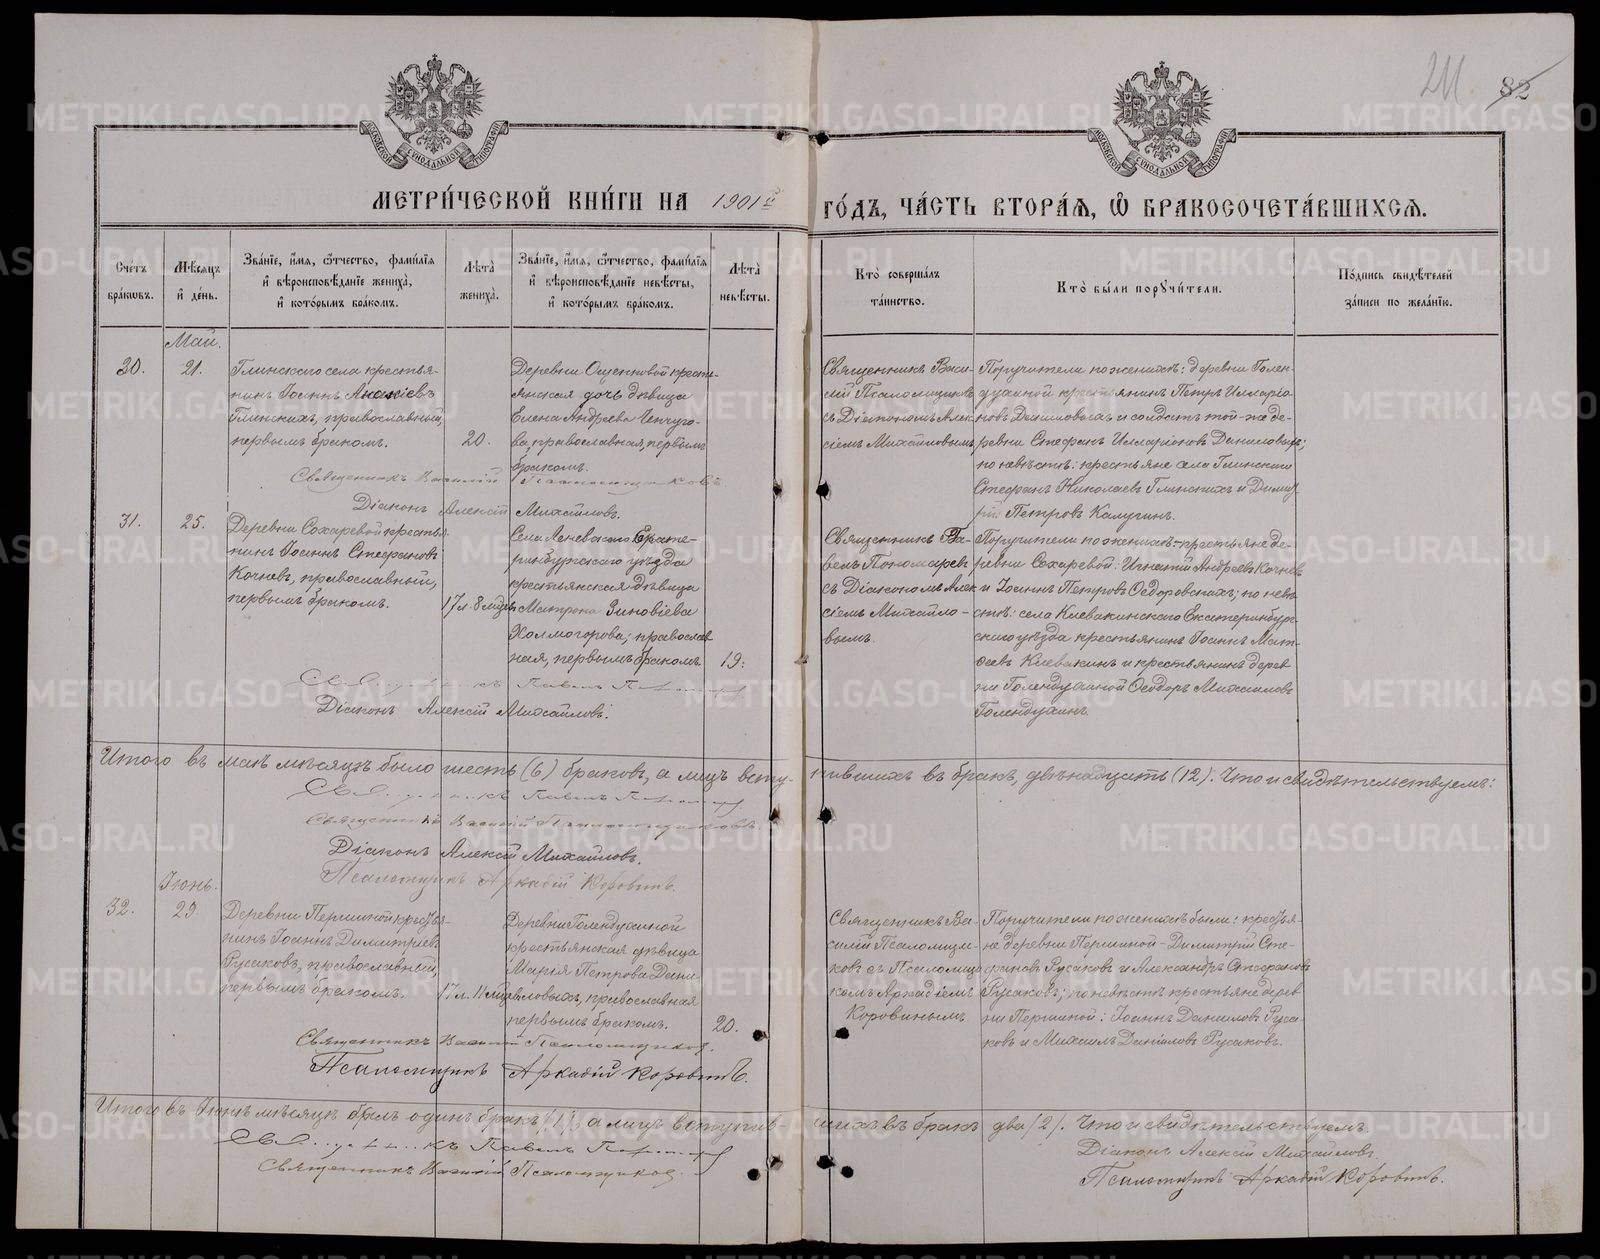 211 82
МОСКОВСКОЙ СѴНОДАЛЬНОЙ ТИПОГРАФІИ
МОСКОВСКОЙ СѴНОДАЛЬНОЙ ТИПОГРАФІИ
МЕТРИ́ЧЕСКОЙ КНИ́ГИ НА 1901й ГО́ДЪ, ЧА́СТЬ ВТОРА́Ѧ, Ѽ БРАКОСОЧЕТА́ВШИХСѦ.
Сче́тъ
бра́кѡвъ.
Мѣ́сѧцъ
и҆ де́нь.
Зва́нїе, и҆́мѧ, ѻ҆́тчество, фами́лїѧ
и҆ вѣроисповѣ́данїе жениха̀,
и҆ кото́рымъ бра́комъ.
Лѣ́та
жениха̀.
Зва́нїе, и҆́мѧ, ѻ҆́тчество, фами́лїѧ
и҆ вѣроисповѣ́данїе невѣ́сты,
и҆ кото́рымъ бра́комъ.
Лѣ́та
невѣ́сты.
Кто̀ соверша́лъ
та́инство.
Кто̀ бы́ли порꙋчи́тели.
По́дпись свидѣ́телей
за́писи по жела́нїю.
Май.
30.
21.
Глинскаго села крестья-
нинъ Іоаннъ Ананіевъ
Глинскихъ, православный,
первымъ бракомъ.
20.
Деревни Ощепковой кресть-
янская дочь дѣвица
Елена Андреева Чепчуго-
ва, православная, первымъ
бракомъ.
Священникъ Васи-
лій Псаломщиковъ
съ Діакономъ Алек-
сіемъ Михайловымъ
Поручители по женихѣ: деревни Голен-
духиной крестьянинъ Петръ Илларіо-
новъ Даниловыхъ и солдатъ той-же де-
ревни Стефанъ Илларіоновъ Даниловыхъ;
по невѣстѣ: крестьяне села Глинскаго
Стефанъ Николаевъ Глинскихъ и Димит-
рій Петровъ Калугинъ.
Священникъ Василій Псаломщиковъ.
Діаконъ Алексій Михайловъ.
31.
25.
Деревни Сохаревой крестья-
нинъ Іоаннъ Стефановъ
Кочневъ, православный,
первымъ бракомъ.
17 л. 8 мцевъ
Села Леневскаго Екате-
ринбужскаго уѣзда
крестьянская дѣвица
Матрона Зиновіева
Холмогорова; православ-
ная, первымъ бракомъ
19.
Священникъ Па-
велъ Пономаревъ
съ Діакономъ Алек-
сіемъ Михайло-
вымъ.
Поручители по женихѣ: крестьяне де-
ревни Сохаревой: Игнатій Андреевъ Кочневъ
и Іоаннъ Петровъ Ѳедоровскихъ; по невѣ-
стѣ: села Клевакинскаго Екатеринбург-
скаго уѣзда крестьянинъ Іоаннъ Мат-
ѳеевъ Клевакинъ и крестьянинъ дерев-
ни Голендухиной Ѳеодоръ Михаиловъ
Голендухинъ.
Священникъ Павелъ Пономаревъ
Діаконъ Алексій Михайловъ.
Итого въ маѣ мѣсяцѣ было шесть (6) браковъ, а лицъ всту- пившихъ въ бракъ, двѣнадцать (12). Что и свидѣтельствуемъ:
Священникъ Павелъ Пономаревъ
Священникъ Василій Псаломщиковъ
Діаконъ Алексій Михайловъ.
Псаломщикъ Аркадій Коровинъ.
Іюнь.
32.
23.
Деревни Першиной крестья-
нинъ Іоаннъ Димитріевъ
Русаковъ, православный,
первымъ бракомъ.
17 л. 11 мцевъ
Деревни Голендухиной
крестьянская дѣвица
Марія Петрова Дани-
ловыхъ, православная
первымъ бракомъ.
20.
Священникъ Ва-
силій Псаломщи-
ковъ съ Псаломщи-
комъ Аркадіемъ
Коровинымъ
Поручители по женихѣ были: крестья-
не деревни Першиной - Димитрій Сте-
фановъ Русаковъ и Александръ Стефановъ
Русаковъ; по невѣстѣ крестьяне дерев-
ни Першиной: Іоаннъ Даниловъ Руса-
ковъ и Михаилъ Даниловъ Русаковъ.
Священникъ Василій Псаломщиковъ.
Псаломщикъ Аркадій Коровинъ.
Итого въ Іюнѣ мѣсяцѣ былъ одинъ бракъ (1), а лицъ вступив- шихъ въ бракъ два (2). Что и свидѣтельствуемъ.
Священникъ Павелъ Пономаревъ
Священникъ Василій Псаломщиковъ.
Діаконъ Алексій Михайловъ.
Псаломщикъ Аркадій Коровинъ.
METRIKI.GASO-URAL.RU